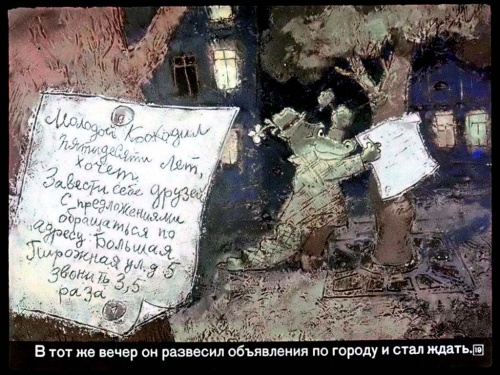 Молодой Кокодил
пятидесяти лет,
хочет
Завести себе друзей
С предложениями
обращаться по
адресу Большая
Пирожная ул. д 5
Звонить 3,5
раза
В тот же вечер он развесил объявления по городу и стал ждать.
19